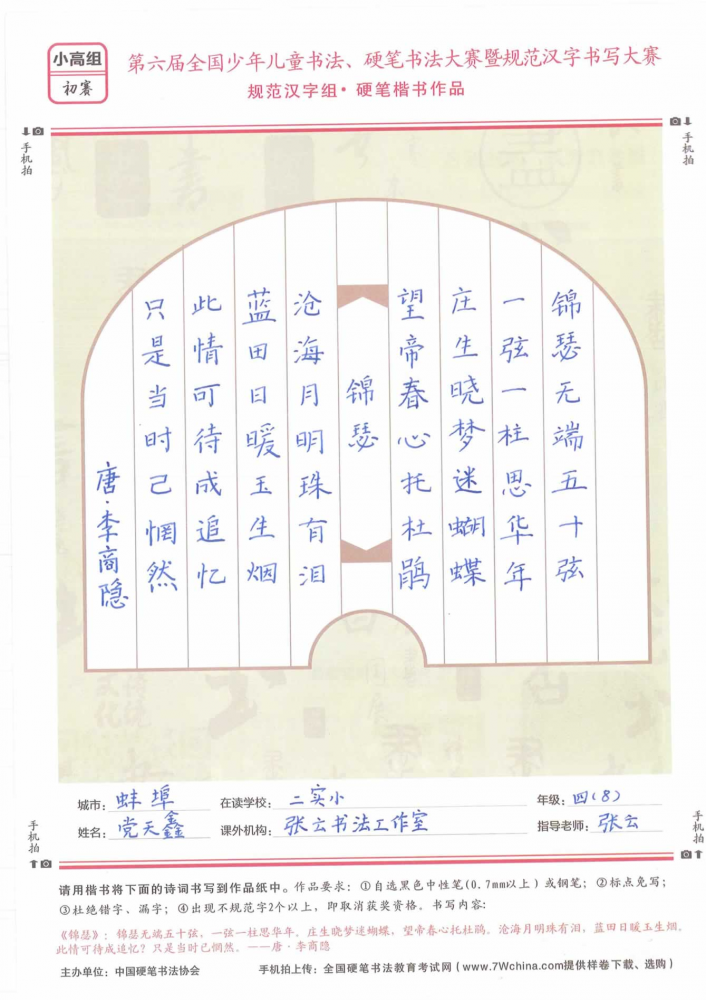 小高组
初赛
第六届全国少年儿童书法、硬笔书法大赛暨规范汉字书写大赛
规范汉字组·硬笔楷书作品
手机拍
手机拍
锦瑟无端五十弦
一弦一柱思华年
庄生晓梦迷蝴蝶
望帝春心托杜鹃
锦瑟
沧海月明珠有泪
蓝田日暖玉生烟
此情可待成追忆
只是当时已惘然
唐·李商隐
城市：蚌埠 在读学校：二实小 年级：四(8)
姓名：党天鑫 课外机构：张云书法工作室 指导老师：张云
手机拍
手机拍
请用楷书将下面的诗词书写到作品纸中。作品要求：①自选黑色中性笔(0.7mm以上）或钢笔；②标点免写；
③杜绝错字、漏字；④出现不规范字2个以上，即取消获奖资格。书写内容：
《锦瑟》：锦瑟无端五十弦，一弦一柱思华年。庄生晓梦迷蝴蝶，望帝春心托杜鹃。沧海月明珠有泪，蓝田日暖玉生烟。
此情可待成追忆？只是当时已惘然。——唐·李商隐
主办单位：中国硬笔书法协会 手机拍上传：全国硬笔书法教育考试网（www.7Wchina.com提供样卷下载、选购）